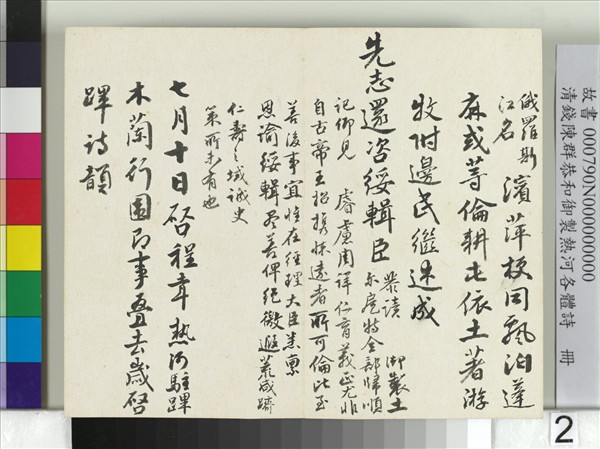 俄羅斯
江名
濱萍梗同飄泊蓬
麻或等倫耕屯依土著游
牧附邊民繼述成
先志還咨綏輯臣
恭讀
御製土
尔扈特全部歸順
記仰見 睿慮周詳仁育義正尤非
自古帝王招携懷遠者所可倫比至
善後事宜惟在經理大臣悉稟
恩諭綏輯尽善俾纪徽遐荒咸躋
仁壽之域誠史
策所未有也
七月十日啓程幸熱河駐蹕
木蘭行圍即事疊去歲啓
蹕詩韻
故書 000790N000000000
清錢陳群恭和御製熱河各體詩 冊
2